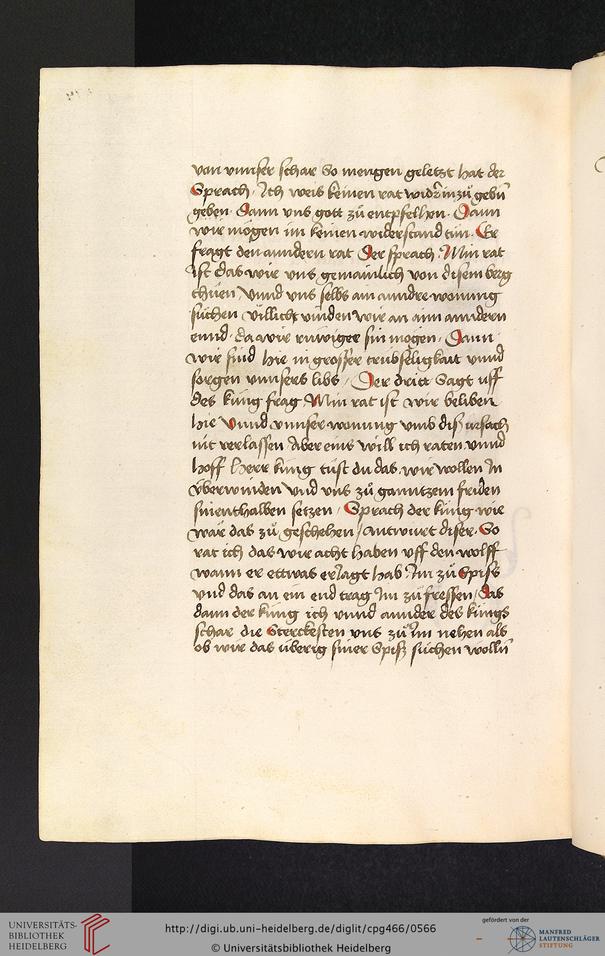 von vnnser schar So mengen geletzt hat der
Sprach · Ich weis keinen rat
geben · Dann vns gott zů entpfelhen · Dann
wir mögen im keinen widerstand tůn · Er
fragt den anndern rat Der sprach · Min rat
ist das wir vns gemainlich von disem berg
thüen / Vnnd vns selbs ain anndre wonung
sůchen / villicht vinden wir an aim anndern
ennd · da wir rüwiger sin mögen · Dann
wir sind hie in grosser trübseligkait vnnd
sorgen vnnsers libs / Der dritt Sagt uff
des küng frag Min rat ist wir beliben
hie Vnnd vnnser wonung vmb diß vrsach
nit verlassen Aber eins will ich raten vnnd
hoff Herr küng tůst du das wir wöllen In
vberwinden Vnd vns zů ganntzem friden
sinenthalben setzen / Sprach der küng wie
wär das zů geschehen / Antwurt diser · So
rat ich das wir acht haben vff den wolff
wann er ettwas erIagt hab Im zů Spiß
vnd das an ein end trag Im zů fressen / das
dann der küng ich vnnd annder des küngs
schar die Sterckesten vns zů Im nehen als
ob wir das überig siner Spiß sůchen wolln
UNIVERSITÄTS-
BIBLIOTHEK
HEIDELBERG
http://digi.ub.uni-heidelberg.de/diglit/cpg466/0566
© Universitätsbibliothek Heidelberg
gefördert von der
MANFRED
LAUTENSCHLÄGER
STIFTUNG